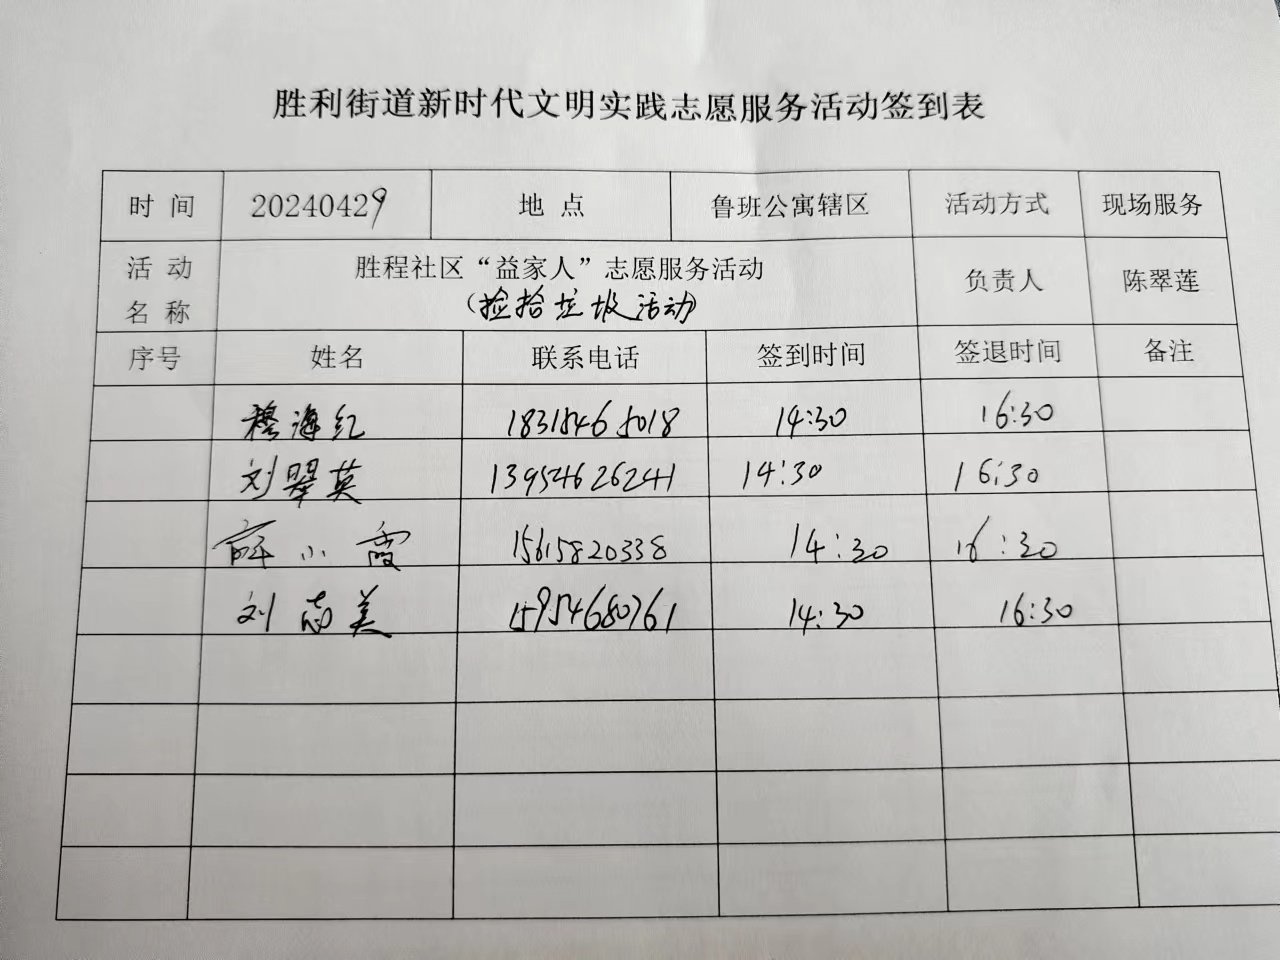 胜利街道新时代文明实践志愿服务活动签到表
时 间 20240429 地 点 鲁班公寓辖区 活动方式 现场服务
活 动 名 称 胜程社区“益家人”志愿服务活动 负责人 陈翠莲
(捡拾垃圾活动)
序号 姓名 联系电话 签到时间 签退时间 备注
穆海红 18315465018 14:30 16:30
刘翠英 13954626241 14:30 16:30
薛小霞 15615820338 14:30 16:30
刘志美 15954680761 14:30 16:30